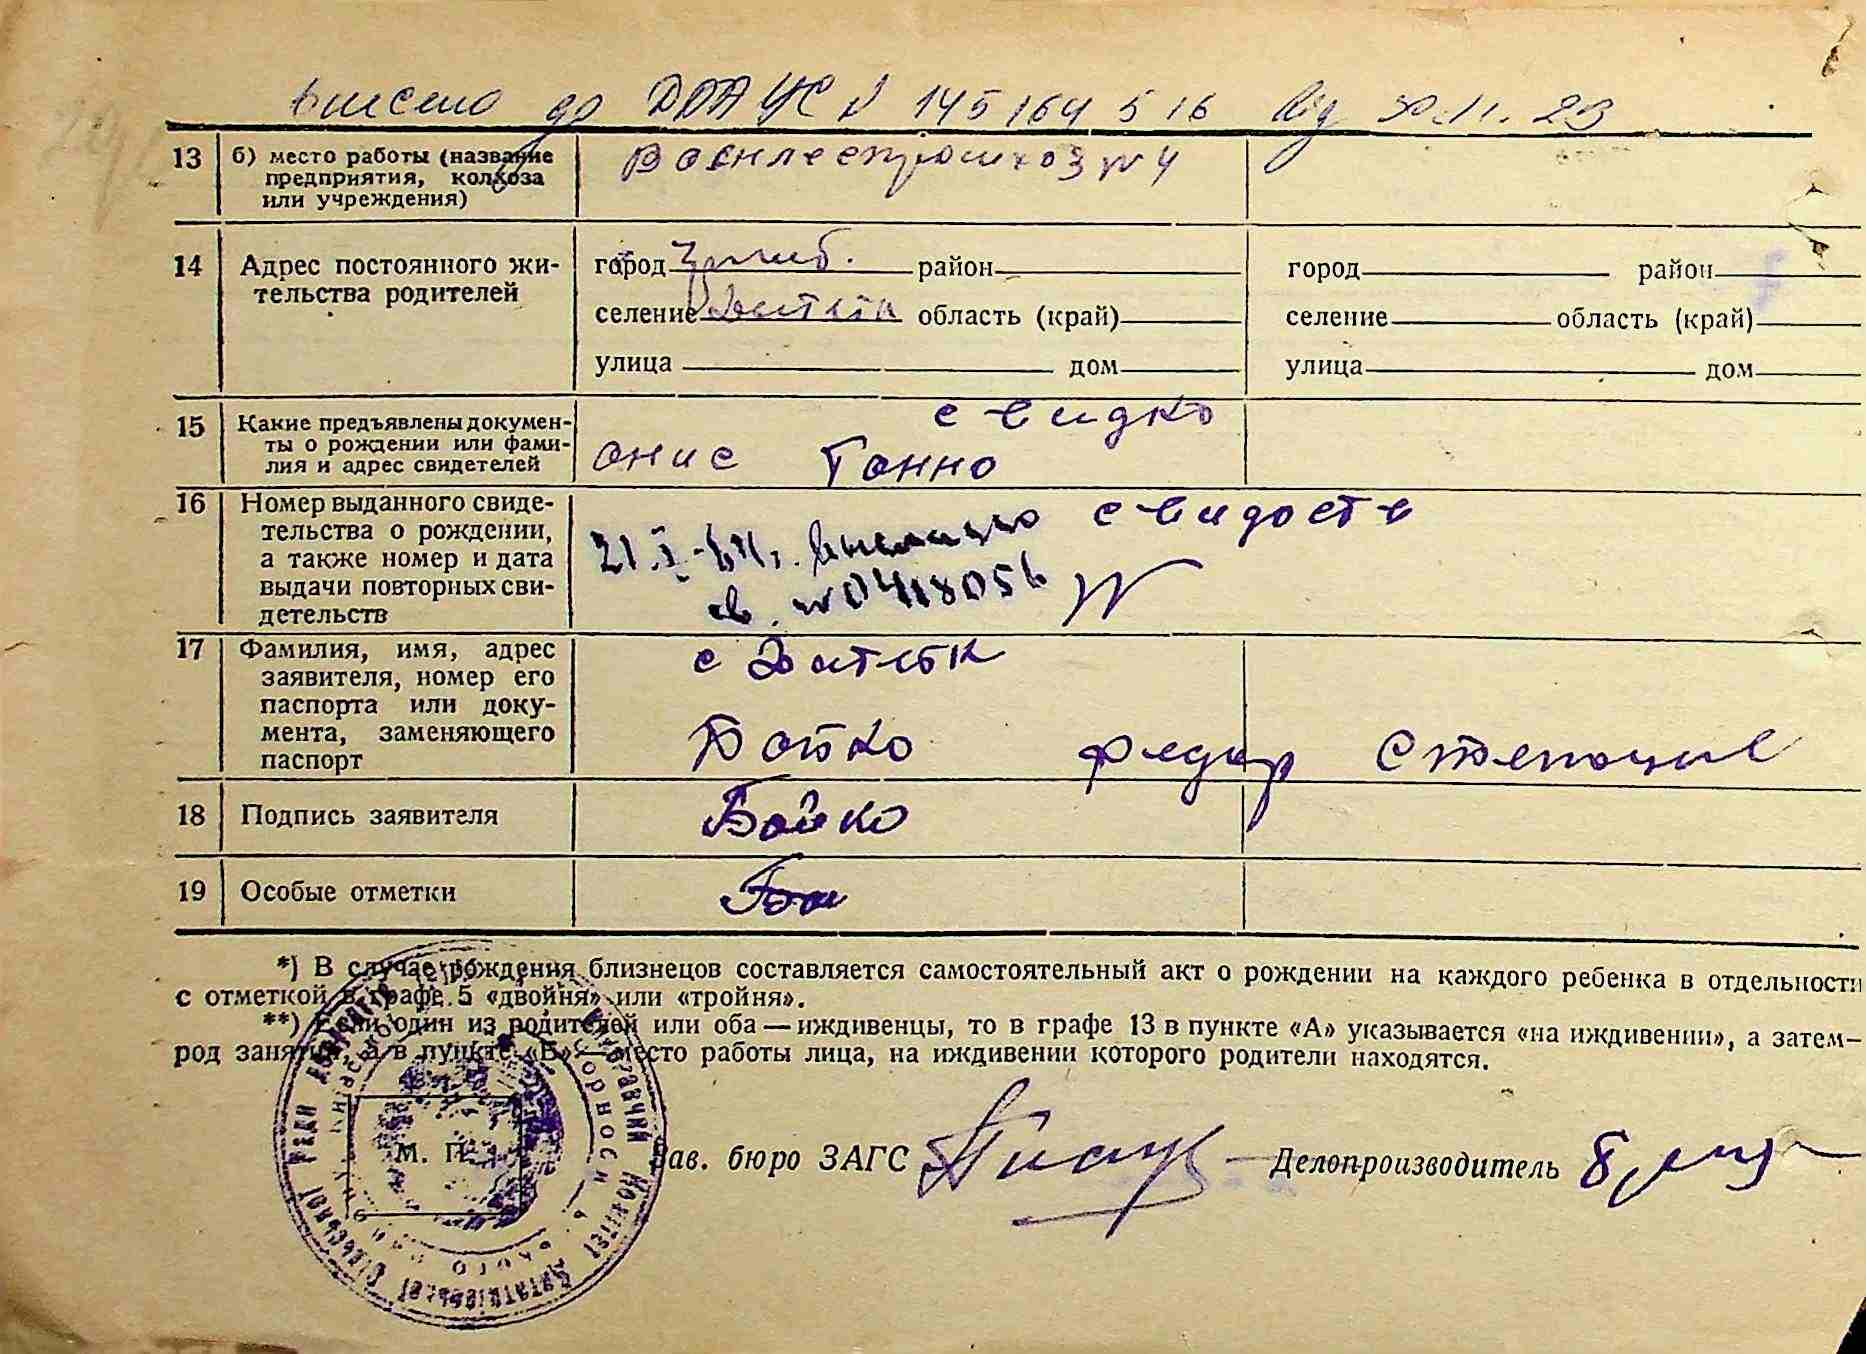 внесено до ДРАЦС № 145164516 від 30.11.23
13 б) место работы (название предприятия, колхоза или учреждения)
Военлеспромхоз №4
14 Адрес постоянного жительства родителей
город район город район
селение Дитятк область (край) селение область (край)
улица дом улица дом
15 Какие предъявлены документы о рождении или фамилия и адрес свидетелей
Ганно
16 Номер выданного свидетельства о рождении, а также номер и дата выдачи повторных свидетельств
свидоств
св. №0418056
17 Фамилия, имя, адрес заявителя, номер его паспорта или документа, заменяющего паспорт
с Дитятк
Бойко Федир Степанов
18 Подпись заявителя Бойко
19 Особые отметки Бой
*) В случае рождения близнецов составляется самостоятельный акт о рождении на каждого ребенка в отдельности
с отметкой в графе 5 «двойня» или «тройня».
**) Если один из родителей или оба — иждивенцы, то в графе 13 в пункте «А» указывается «на иждивении», а затем —
род занятия, а в пункте «Б» — место работы лица, на иждивении которого родители находятся.
М. П. Зав. бюро ЗАГС Делопроизводитель